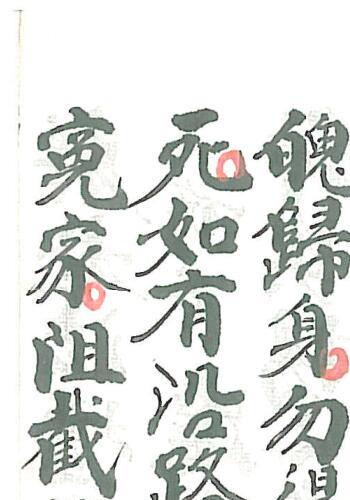 魄歸身勿得
死如有沿路
冤家阻截